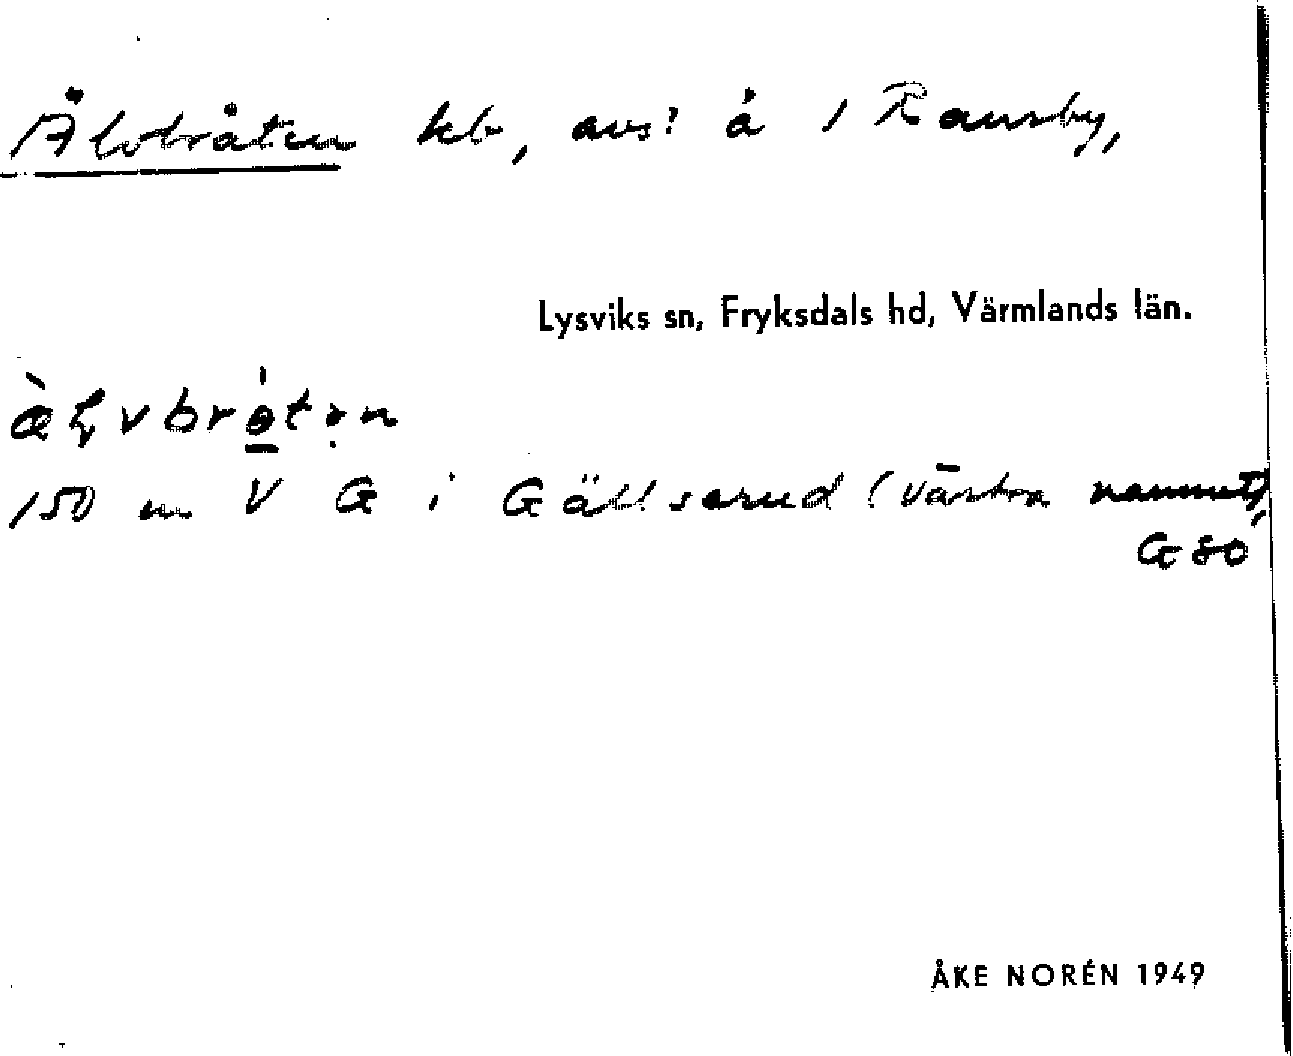 Älvbråten hb, avs: å 1 Ransby,
Lysviks sn, Fryksdals hd, Värmlands län.
150 m V G i Gällserud (västra namnet),
G 80
ÅKE NORÉN 1949